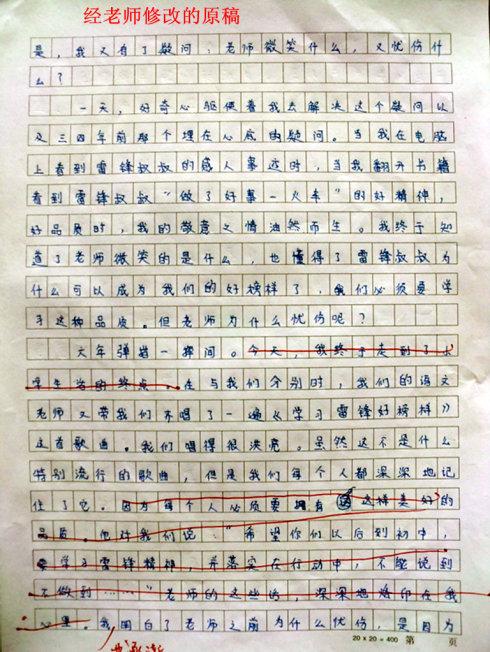 经老师修改的原稿
是，我又有了疑问：老师微笑什么，又忧伤什
么？
一天，好奇心驱使着我去解决这个疑问以
及三四年前那个埋在心底的疑问。当我在电脑
上看到雷锋叔叔的感人事迹时，当我翻开书籍
看到雷锋叔叔“做了好事一火车”的好精神，
好品质时，我的敬意之情油然而生。我终于知
道了老师微笑的是什么，也懂得了雷锋叔叔为
什么可以成为我们的好榜样了，我们必须要学
习这种品质。但老师为什么忧伤呢？
六年弹指一挥间。今天，我终于走到了小
学生活的终点。在与我们分别时，我们的语文
老师又带我们齐唱了一遍《学习雷锋好榜样》
这首歌曲。我们唱得很洪亮。虽然这不是什么
特别流行的歌曲，但是我们每个人都深深地记
住了它。因为每个人必须要拥有这样美好的
品质。他对我们说：“希望你们以后到初中，
要学习雷锋精神，并落实在行动中，不能说到
不做到……”老师的这些话，深深地烙印在我
心里。我明白了老师之前为什么忧伤，是因为
20×20=400 第 页